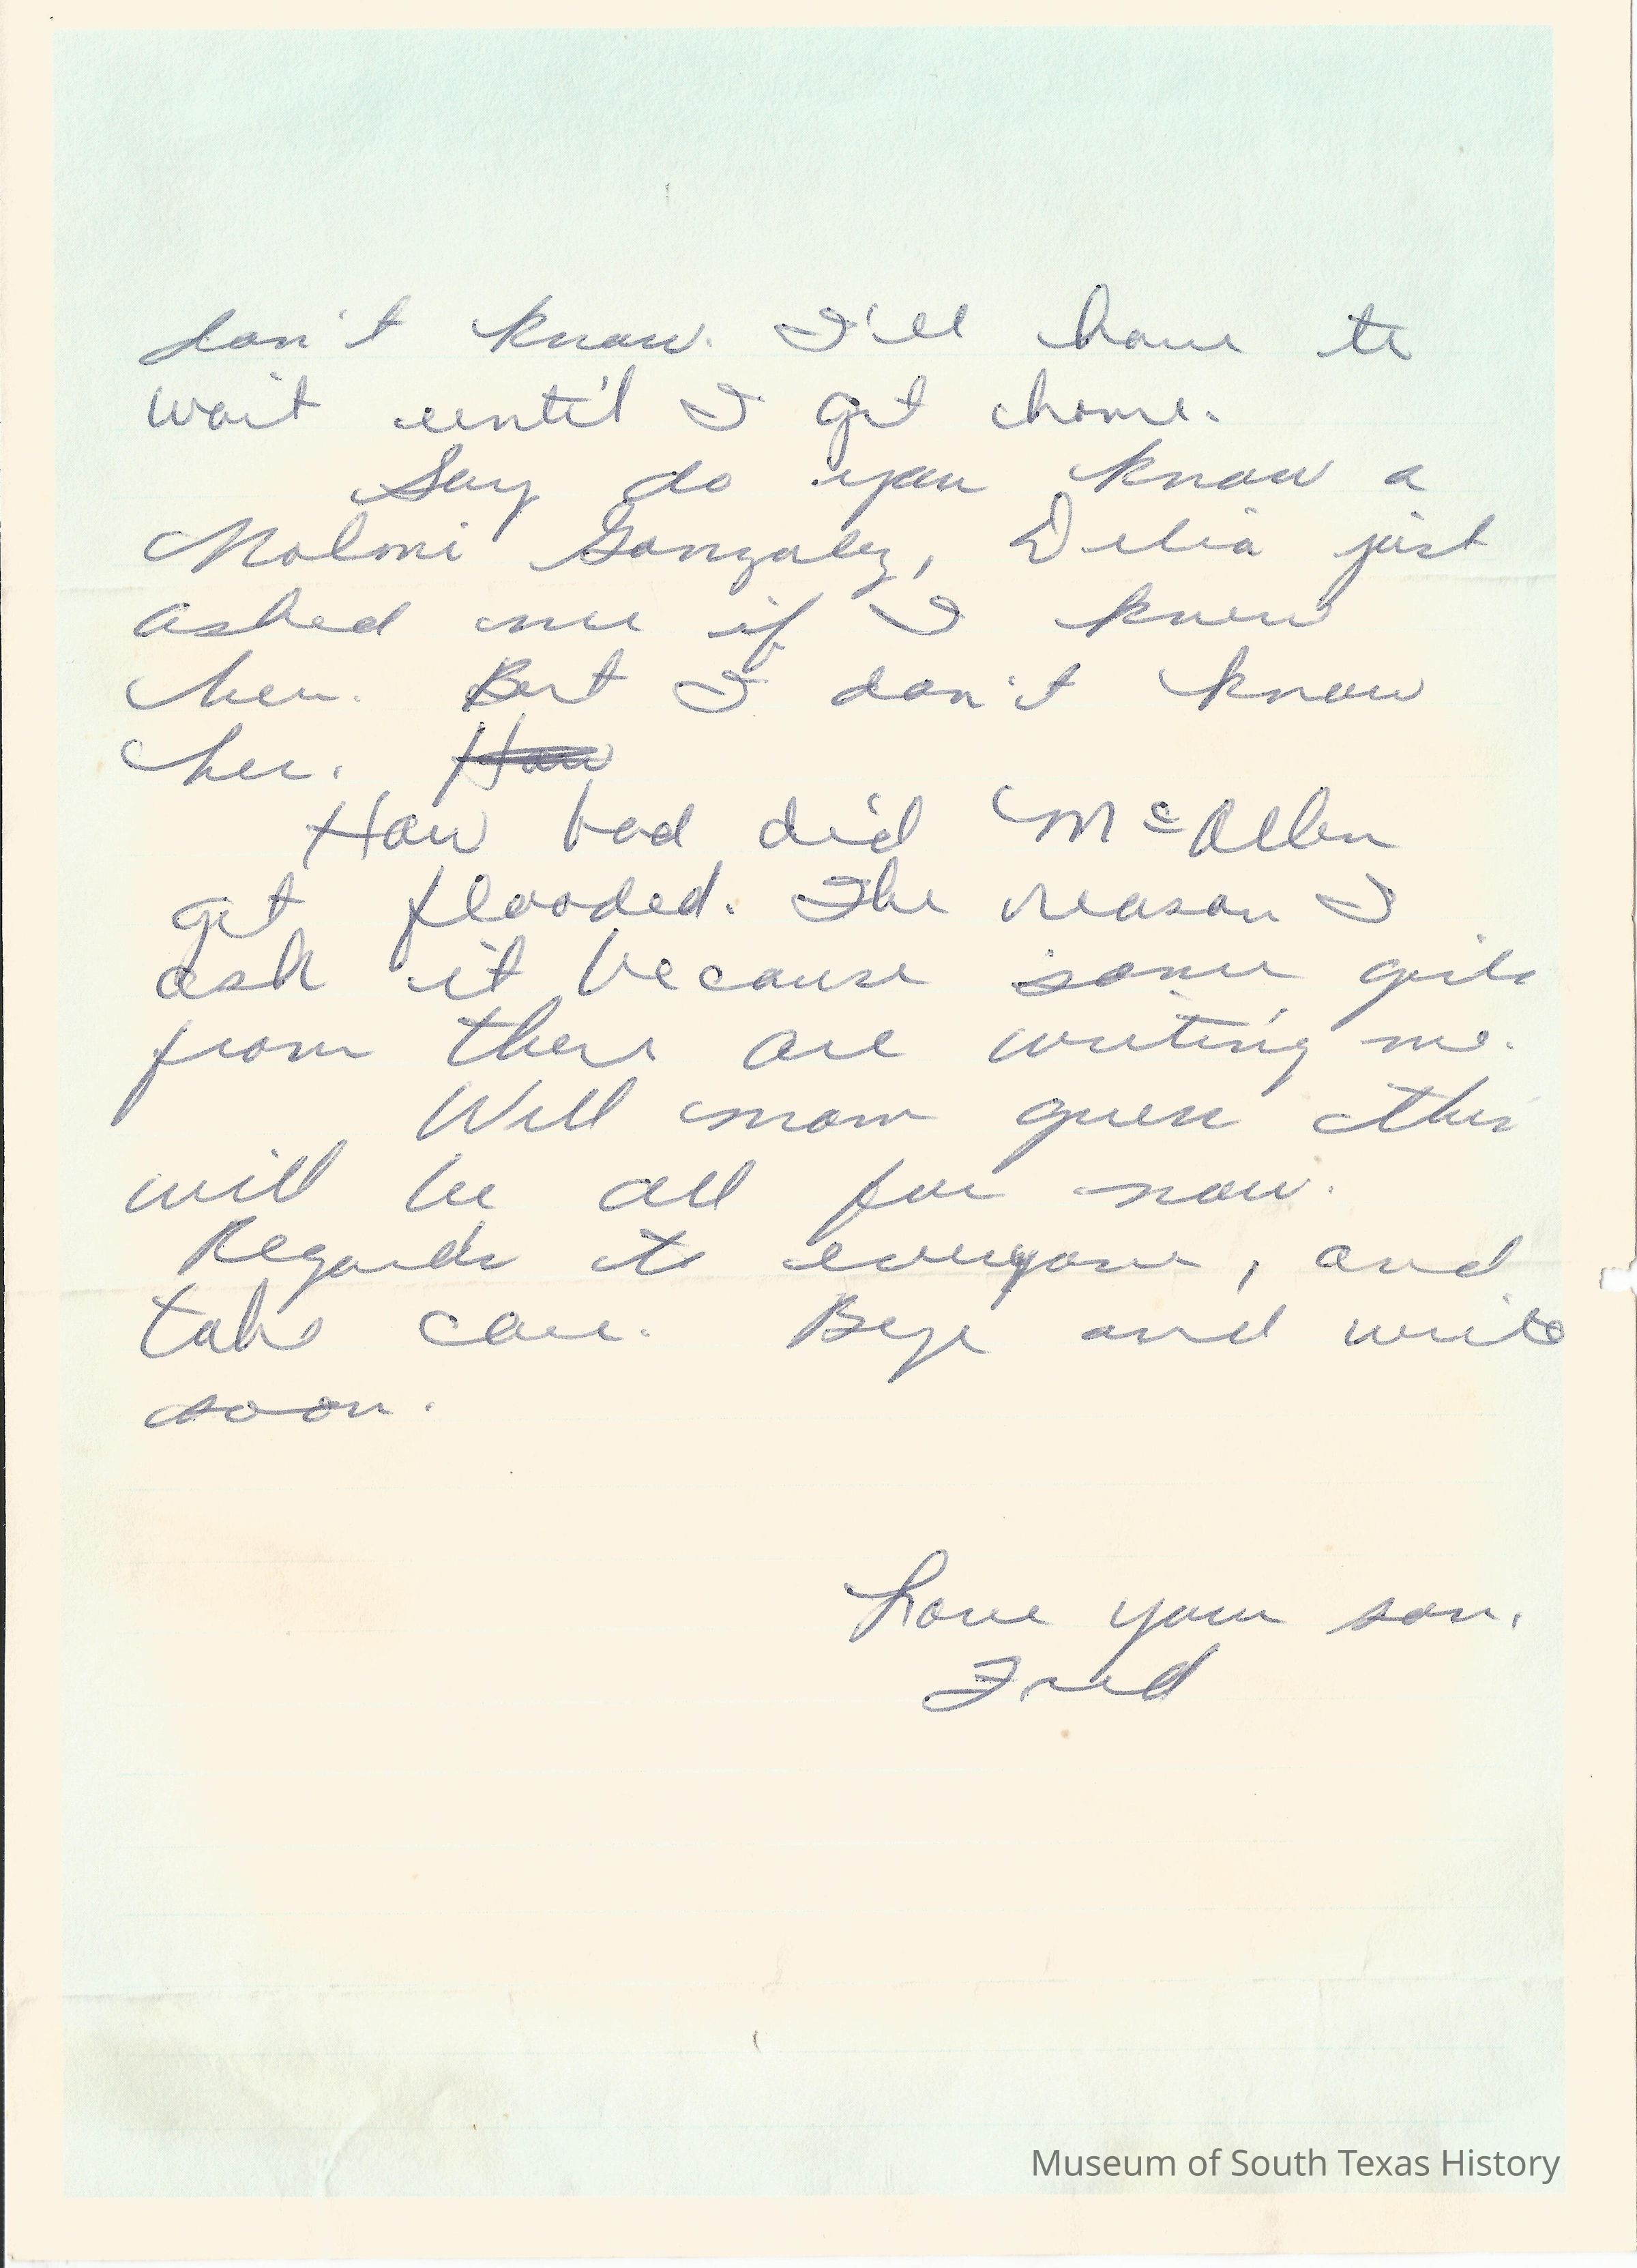 don't know. I'll have to
wait until I get home.
Say do you know a
Gonzalez, Delia just
asked me if I knew
her. But I don't know
her. How
How bad did McAllen
get flooded. The reason I
ask it because some girls
from there are writing me.
Well mom guess this
will be all for now.
Regards to everyone, and
take care. Bye and write
soon.
Love your son,
Fred
Museum of South Texas History